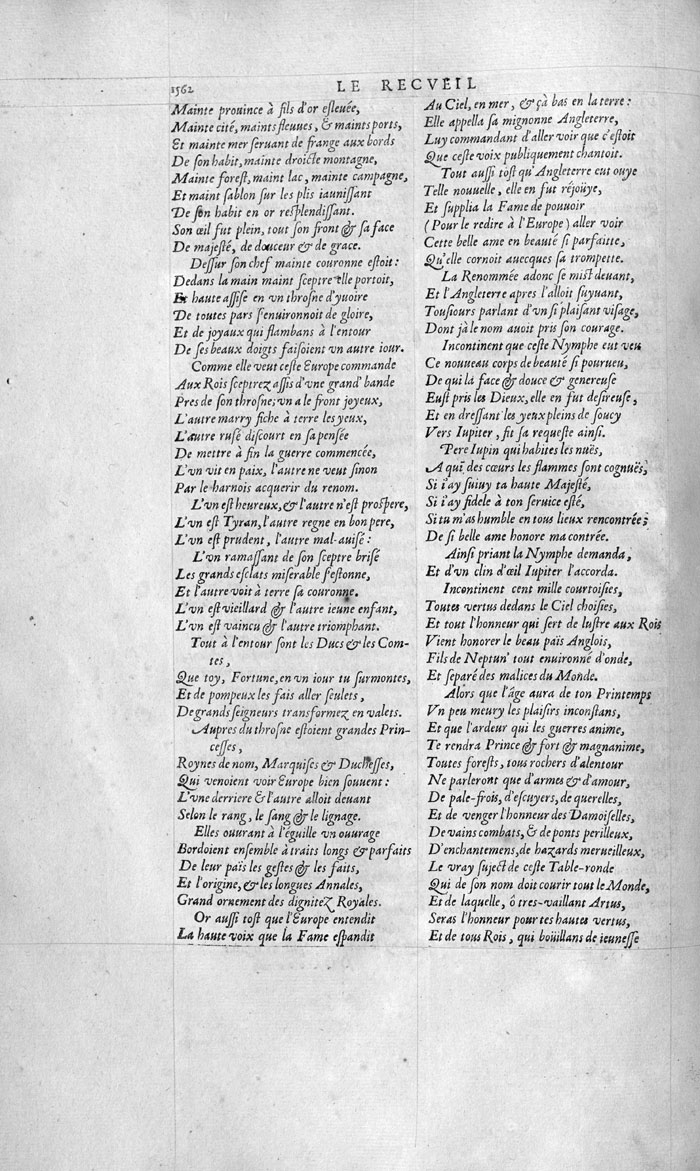 1562
LE RECVEIL
Mainte prouince à fils d'or esleuée,
Mainte cité, maints fleuues, & maints ports,
Et mainte mer seruant de frange aux bords
De son habit, mainte droicte montagne,
Mainte forest, maint lac, mainte campagne,
Et maint sablon sur les plis iaunissant
De son habit en or resplendissant.
Son œil fut plein, tout son front & sa face
De majesté, de douceur & de grace.
Dessur son chef mainte couronne estoit:
Dedans la main maint sceptre elle portoit,
Et haute assise en vn throsne d'yuoire
De toutes pars s'enuironnoit de gloire,
Et de joyaux qui flambans à l'entour
De ses beaux doigts faisoient vn autre iour.
Comme elle veut ceste Europe commande
Aux Rois sceptrez assis d'vne grand' bande
Pres de son throsne; vn a le front joyeux,
L'autre marry fiche à terre les yeux,
L'autre rusé discourt en sa pensée
De mettre à fin la guerre commencée,
L'vn vit en paix, l'autre ne veut sinon
Par le harnois acquerir du renom.
L'vn est heureux, & l'autre n'est prospere,
L'vn est Tyran, l'autre regne en bon pere,
L'vn est prudent, l'autre mal-auisé:
L'vn ramassant de son sceptre brisé
Les grands esclats miserable s'estonne,
Et l'autre voit à terre sa couronne.
L'vn est vieillard & l'autre ieune enfant,
L'vn est vaincu & l'autre triomphant.
Tout à l'entour sont les Ducs & les Com-
tes,
Que toy, Fortune, en vn iour tu surmontes,
Et de pompeux les fais aller seulets,
De grands seigneurs transformez en valets.
Aupres du throsne estoient grandes Prin-
cesses,
Roynes de nom, Marquises & Duchesses,
Qui venoient voir Europe bien souuent:
L'vne derriere & l'autre alloit deuant
Selon le rang, le sang & le lignage.
Elles ouurant à l'éguille vn ouurage
Bordoient ensemble à traits longs & parfaits
De leur païs les gestes & les faits,
Et l'origine, & les longues Annales,
Grand ornement des dignitez Royales.
Or aussi tost que l'Europe entendit
La haute voix que la Fame espandit
Au Ciel, en mer, & çà bas en la terre:
Elle appella sa mignonne Angleterre,
Luy commandant d'aller voir que c'estoit
Que ceste voix publiquement chantoit.
Tout aussi tost qu'Angleterre eut ouye
Telle nouuelle, elle en fut réjoüye,
Et supplia la Fame de pouuoir
(Pour le redire à l'Europe) aller voir
Cette belle ame en beauté si parfaitte,
Qu'elle cornoit auecques sa trompette.
La Renommée adonc se mist deuant,
Et l'Angleterre apres l'alloit suyuant,
Tousiours parlant d'vn si plaisant visage,
Dont jà le nom auoit pris son courage.
Incontinent que ceste Nymphe eut veu
Ce nouueau corps de beauté si pourueu,
De qui la face & douce & genereuse
Eust pris les Dieux, elle en fut desireuse,
Et en dressant les yeux pleins de soucy
Vers Iupiter, fit sa requeste ainsi.
Pere Iupin qui habites les nuës,
A qui des cœurs les flammes sont cognuës,
Si i'ay suiuy ta haute Majesté,
Si i'ay fidele à ton seruice esté,
Si tu m'as humble en tous lieux rencontrée;
De si belle ame honore ma contrée.
Ainsi priant la Nymphe demanda,
Et d'vn clin d'œil Iupiter l'accorda.
Incontinent cent mille courtoisies,
Toutes vertus dedans le Ciel choisies,
Et tout l'honneur qui sert de lustre aux Rois
Vient honorer le beau païs Anglois,
Fils de Neptun' tout enuironné d'onde,
Et separé des malices du Monde.
Alors que l'âge aura de ton Printemps
Vn peu meury les plaisirs inconstans,
Et que l'ardeur qui les guerres anime,
Te rendra Prince & fort & magnanime,
Toutes forests, tous rochers d'alentour
Ne parleront que d'armes & d'amour,
De pale-frois, d'escuyers, de querelles,
Et de venger l'honneur des Damoiselles,
De vains combats, & de ponts perilleux,
D'enchantemens, de hazards merueilleux,
Le vray suject de ceste Table-ronde
Qui de son nom doit courir tout le Monde,
Et de laquelle, ô tres-vaillant Artus,
Seras l'honneur pour tes hautes vertus,
Et de tous Rois, qui boüillans de ieunesse